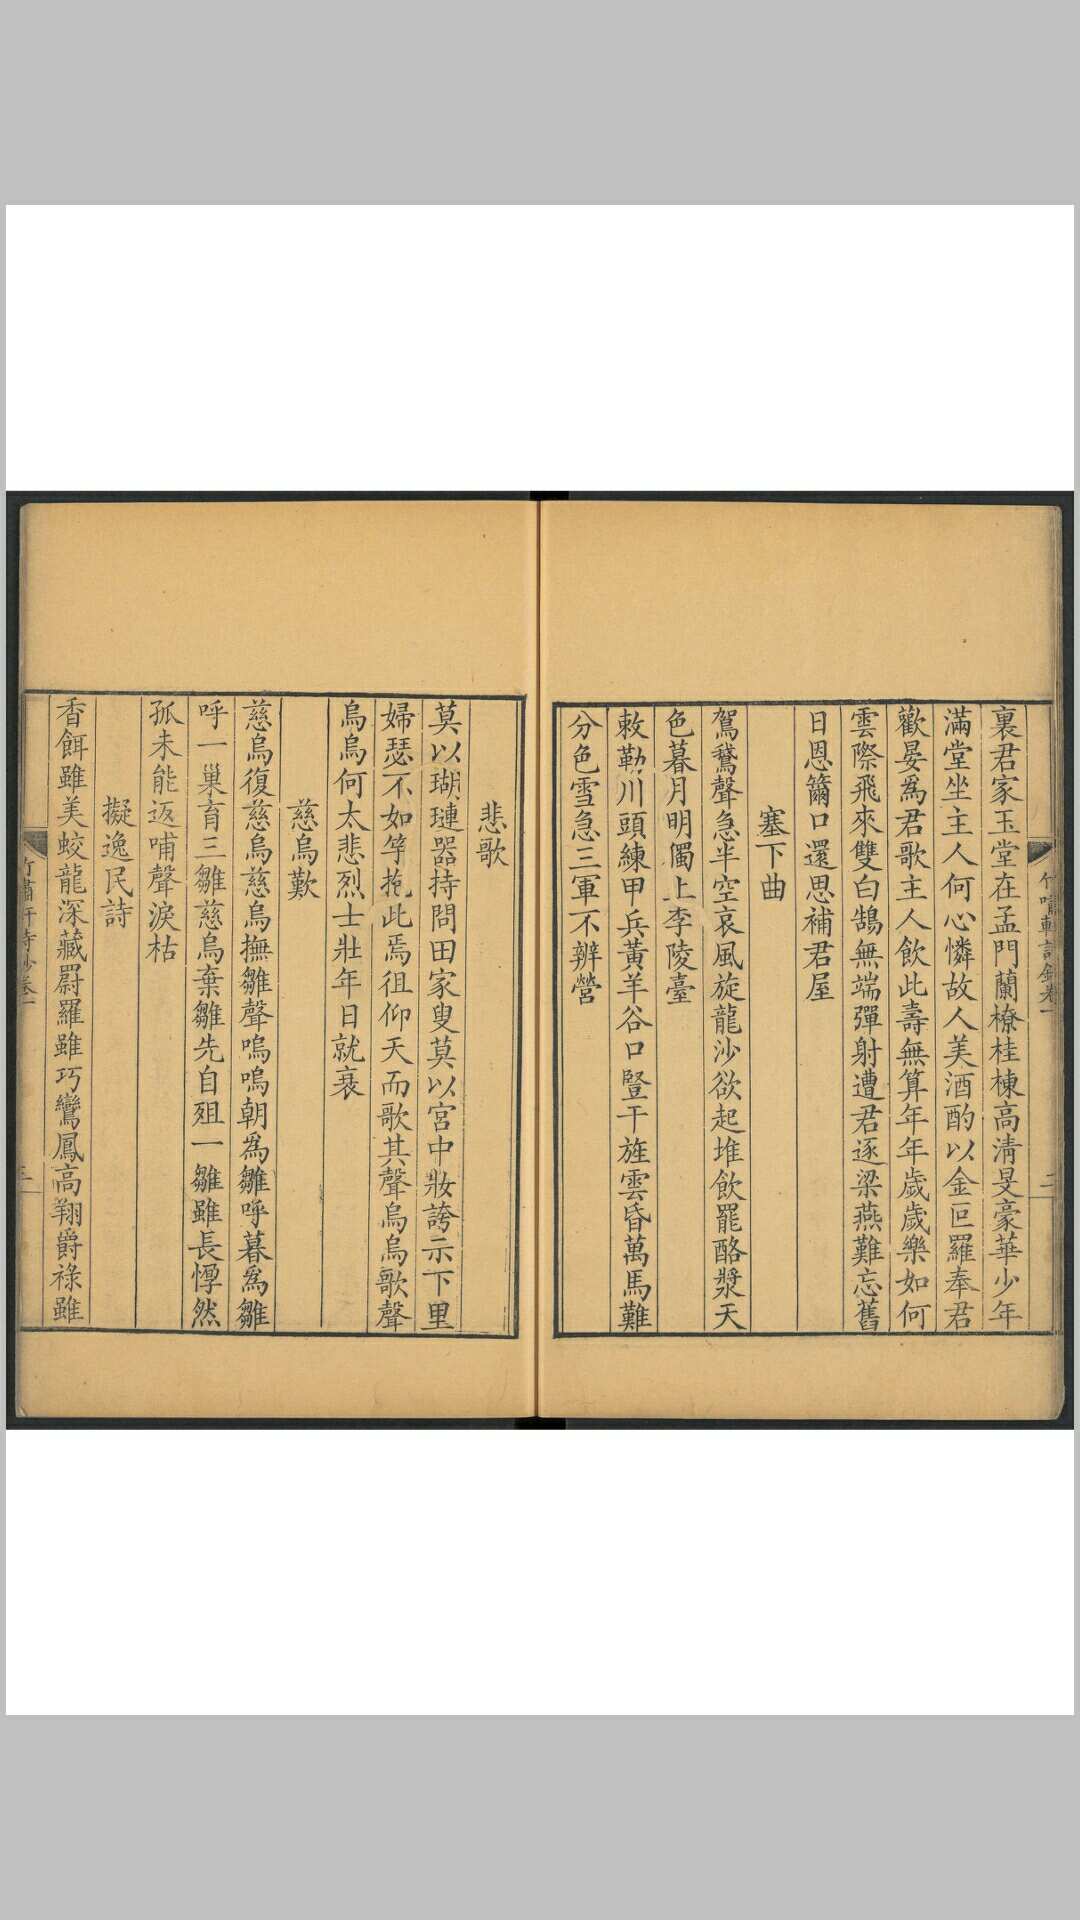 竹嘯軒詩鈔卷一
二
裏君家玉堂在孟門蘭橑桂棟高清旻豪華少年
滿堂坐主人何心憐故人美酒酌以金叵羅奉君
歡晏為君歌主人飲此壽無算年年歲歲樂如何
雲際飛來雙白鵠無端彈射遭君逐梁燕難忘舊
日恩籋口還思補君屋
塞下曲
駕鵞聲急半空哀風旋龍沙欲起堆飲罷酪漿天
色暮月明僩上李陵臺
敕勒川頭練甲兵黃羊谷口豎干旌雲昏萬馬難
分色雪急三軍不辨營
悲歌
莫以瑚璉器持問田家叟莫以宮中妝誇示下里
婦瑟不如竽抱此焉徂仰天而歌其聲烏烏歌聲
烏烏何太悲烈士壯年日就衰
慈烏歎
慈烏復慈烏慈烏撫雛聲嗚嗚朝為雛呼暮為雛
呼一巢育三雛慈烏棄雛先自殂一雛雖長惸然
孤未能返哺聲淚枯
擬逸民詩
香餌雖美蛟龍深藏罻羅雖巧鸞鳳高翔爵祿雖
竹嘯軒詩鈔卷一
三